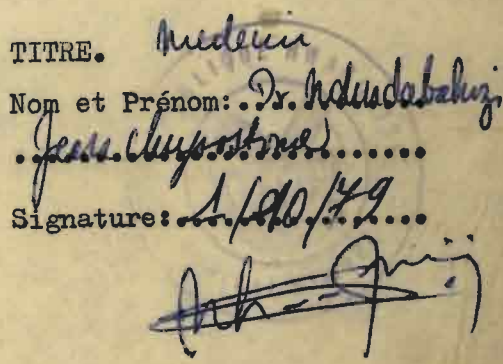 TITRE. Medecin
Nom et Prénom: Dr. Ndundabahizi
Jean Chrysostome
Signature: 1/10/79